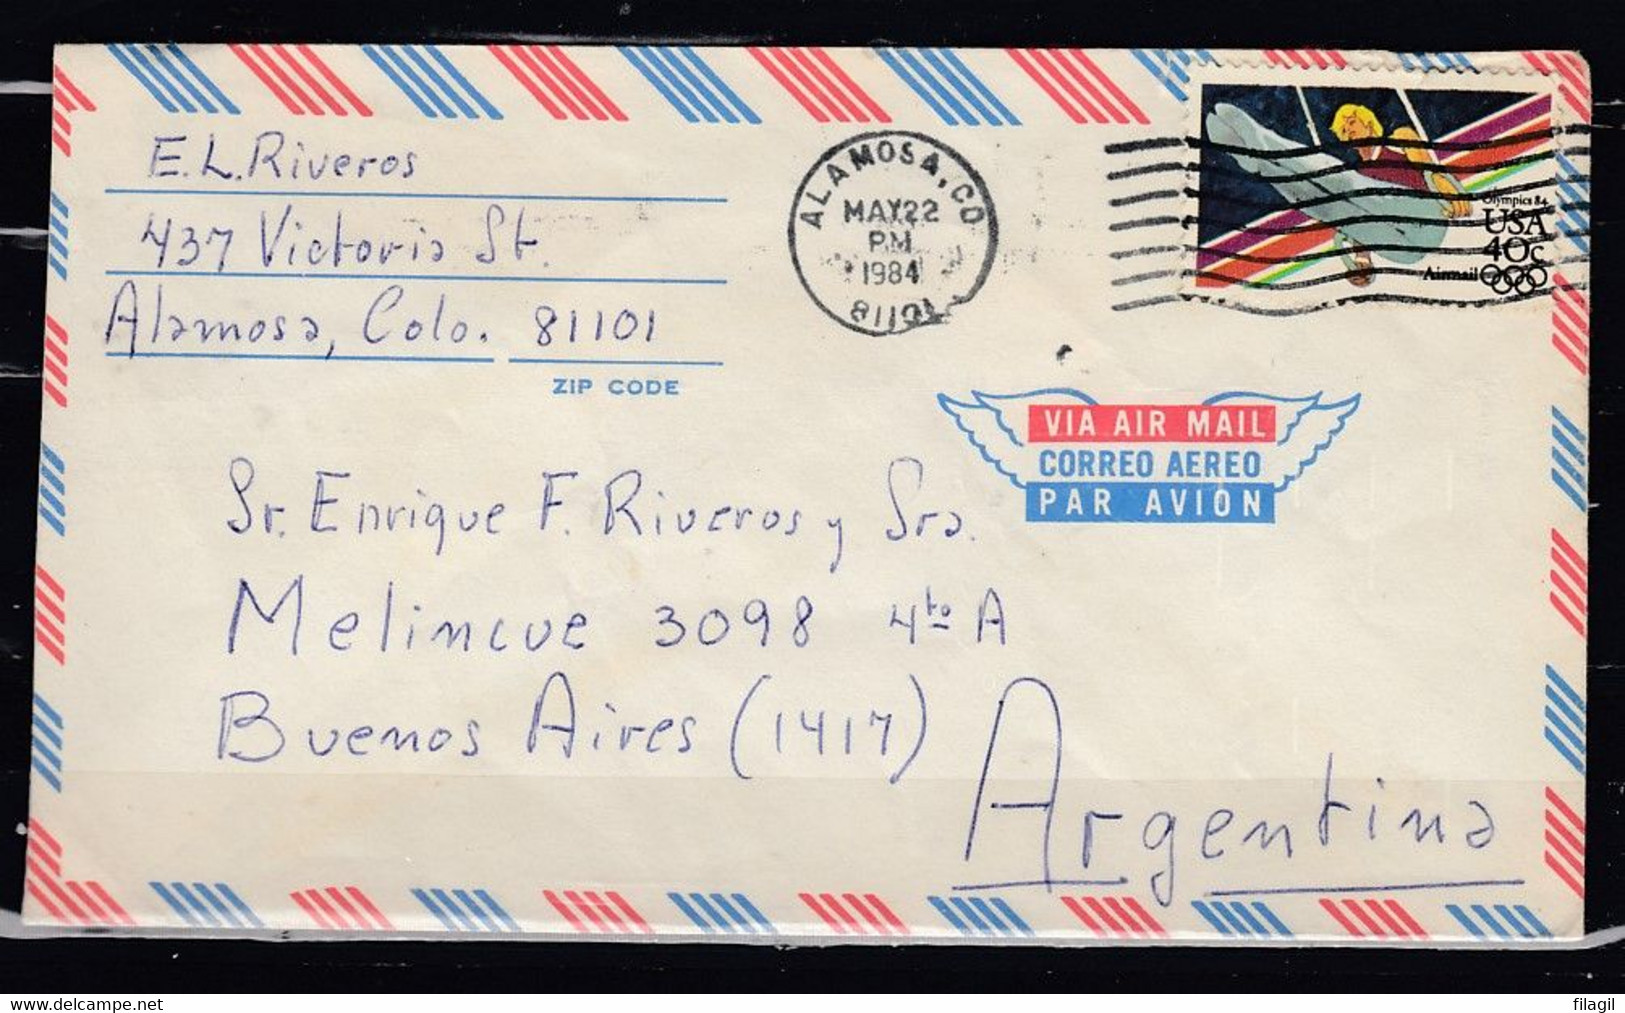 E. L. Riveros
437 Victoria St.
Alamosa, Colo. 81101
ZIP CODE
ALAMOSA, CO
MAY 22
PM
1984
81101
Olympics 84
USA
40c
Airmail
VIA AIR MAIL
CORREO AEREO
PAR AVION
Sr. Enrique F. Riveros y Sra.
Melincue 3098 4to A
Buenos Aires (1417)
Argentina
www.delcampe.net
filagil